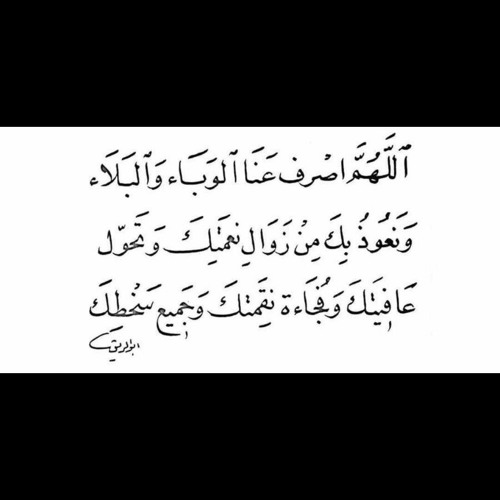 ٱللَّهُمَّ اصْرِف عَنَا الوَبَاء وَالبَلَاء
وَنَعُوذُ بِكَ مِنْ زَوَالِ نِعمَتِكَ وَتَحوّل
عَافِيَتِكَ وَفُجَاءة نِقمَتكَ وَجَمِيع سَخطِك